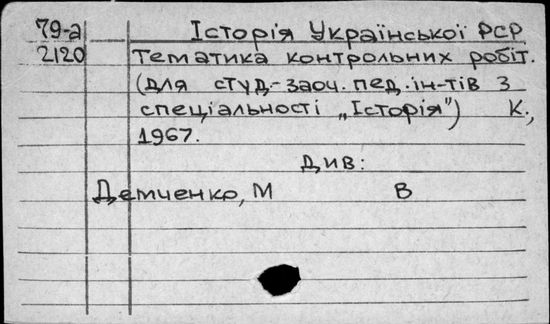 79-а Історія Української РСР
2120 Тематика контрольних робіт.
(для студ-заоч. пед. ін-тів з
спеціальності „Історія") К.,
1967.
Див:
Демченко, М В